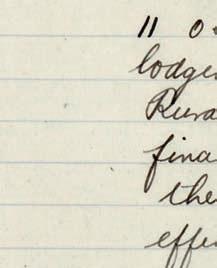 11 0
lodge
Rura
fina
the
effe